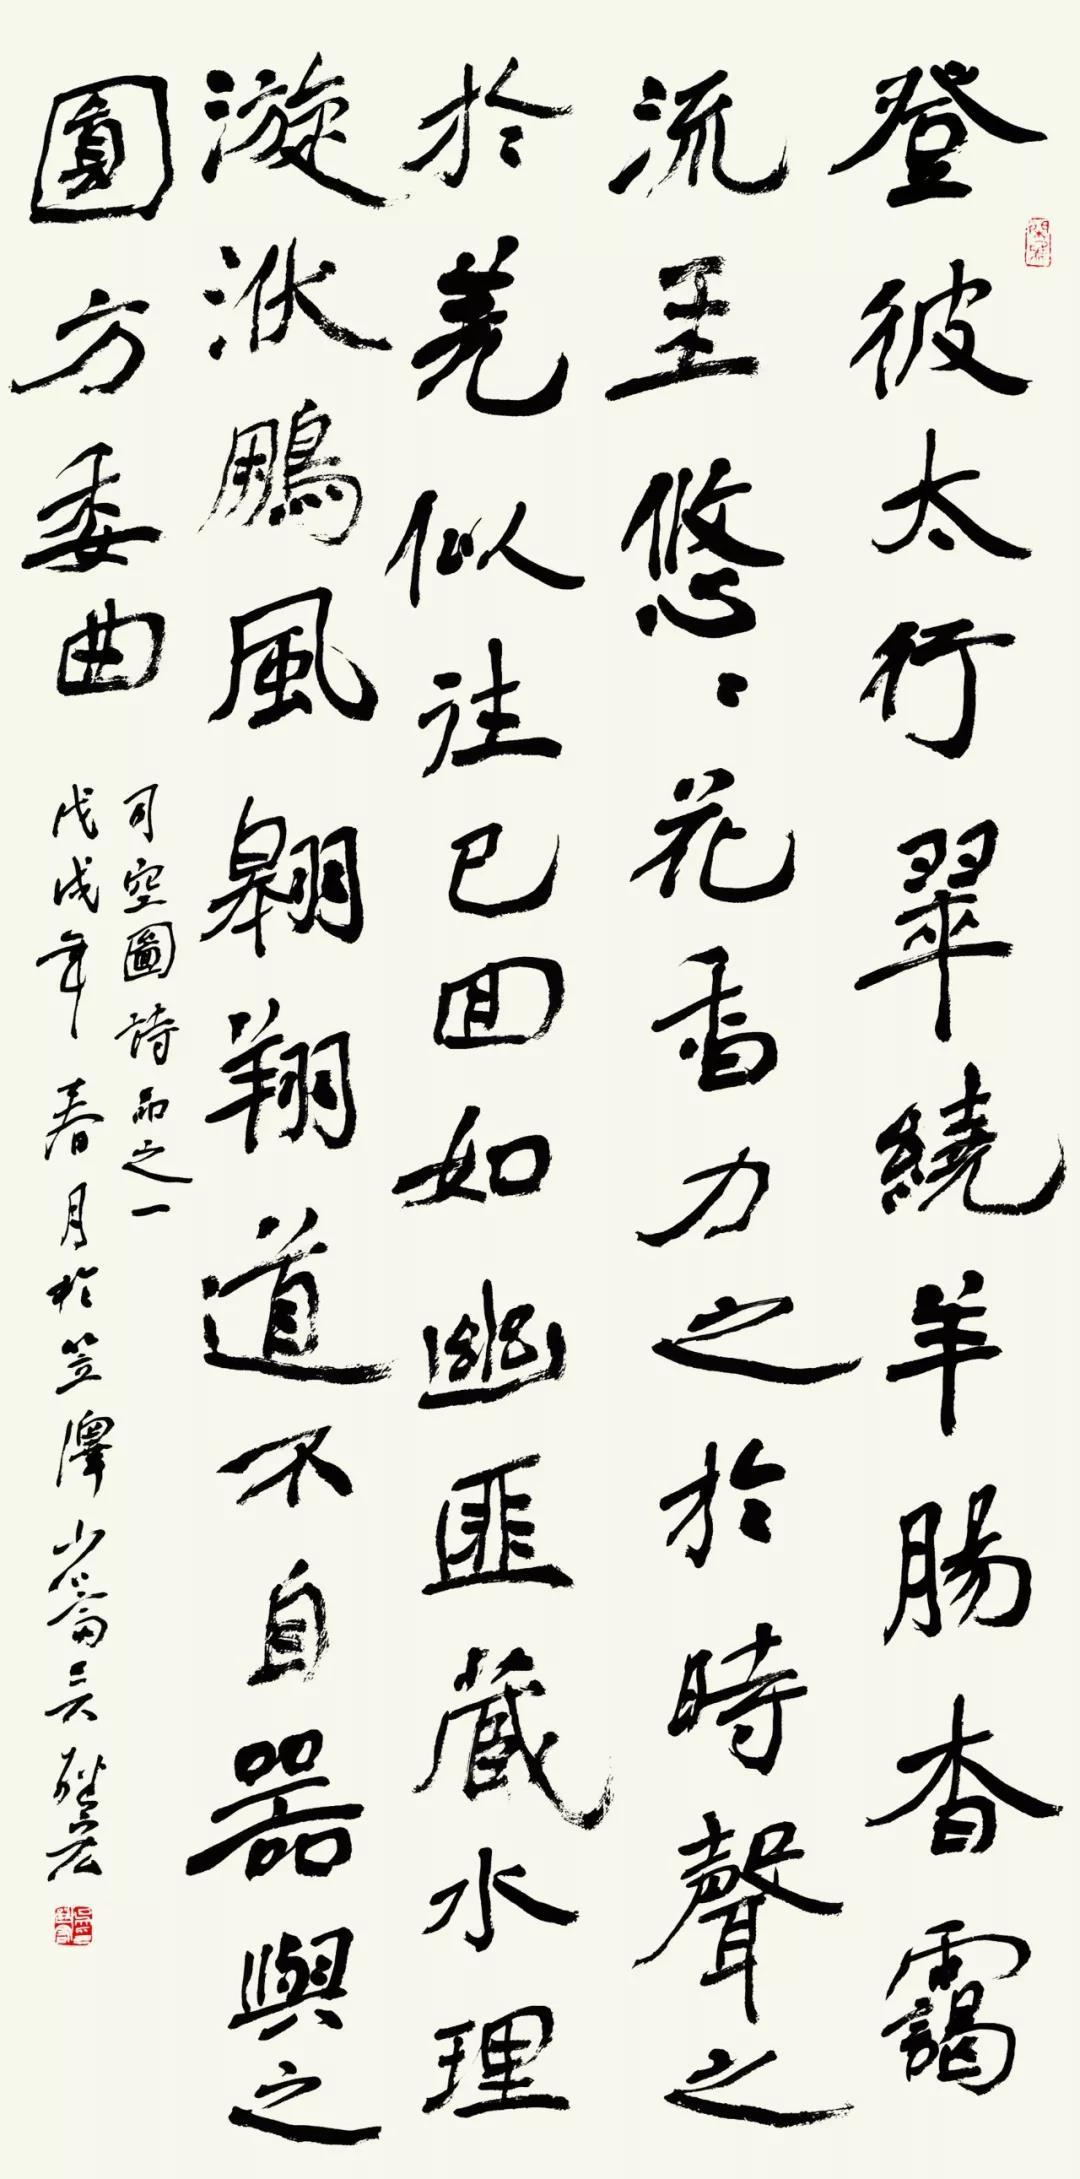 登彼太行翠繞羊腸杳靄
流玉悠〻花香力之於時聲之
於羌似往已回如幽匪藏水理
漩洑鵬風翱翔道不自器與之
圓方委曲
司空圖詩品之一
戊戌年春月於笠澤小齋吳